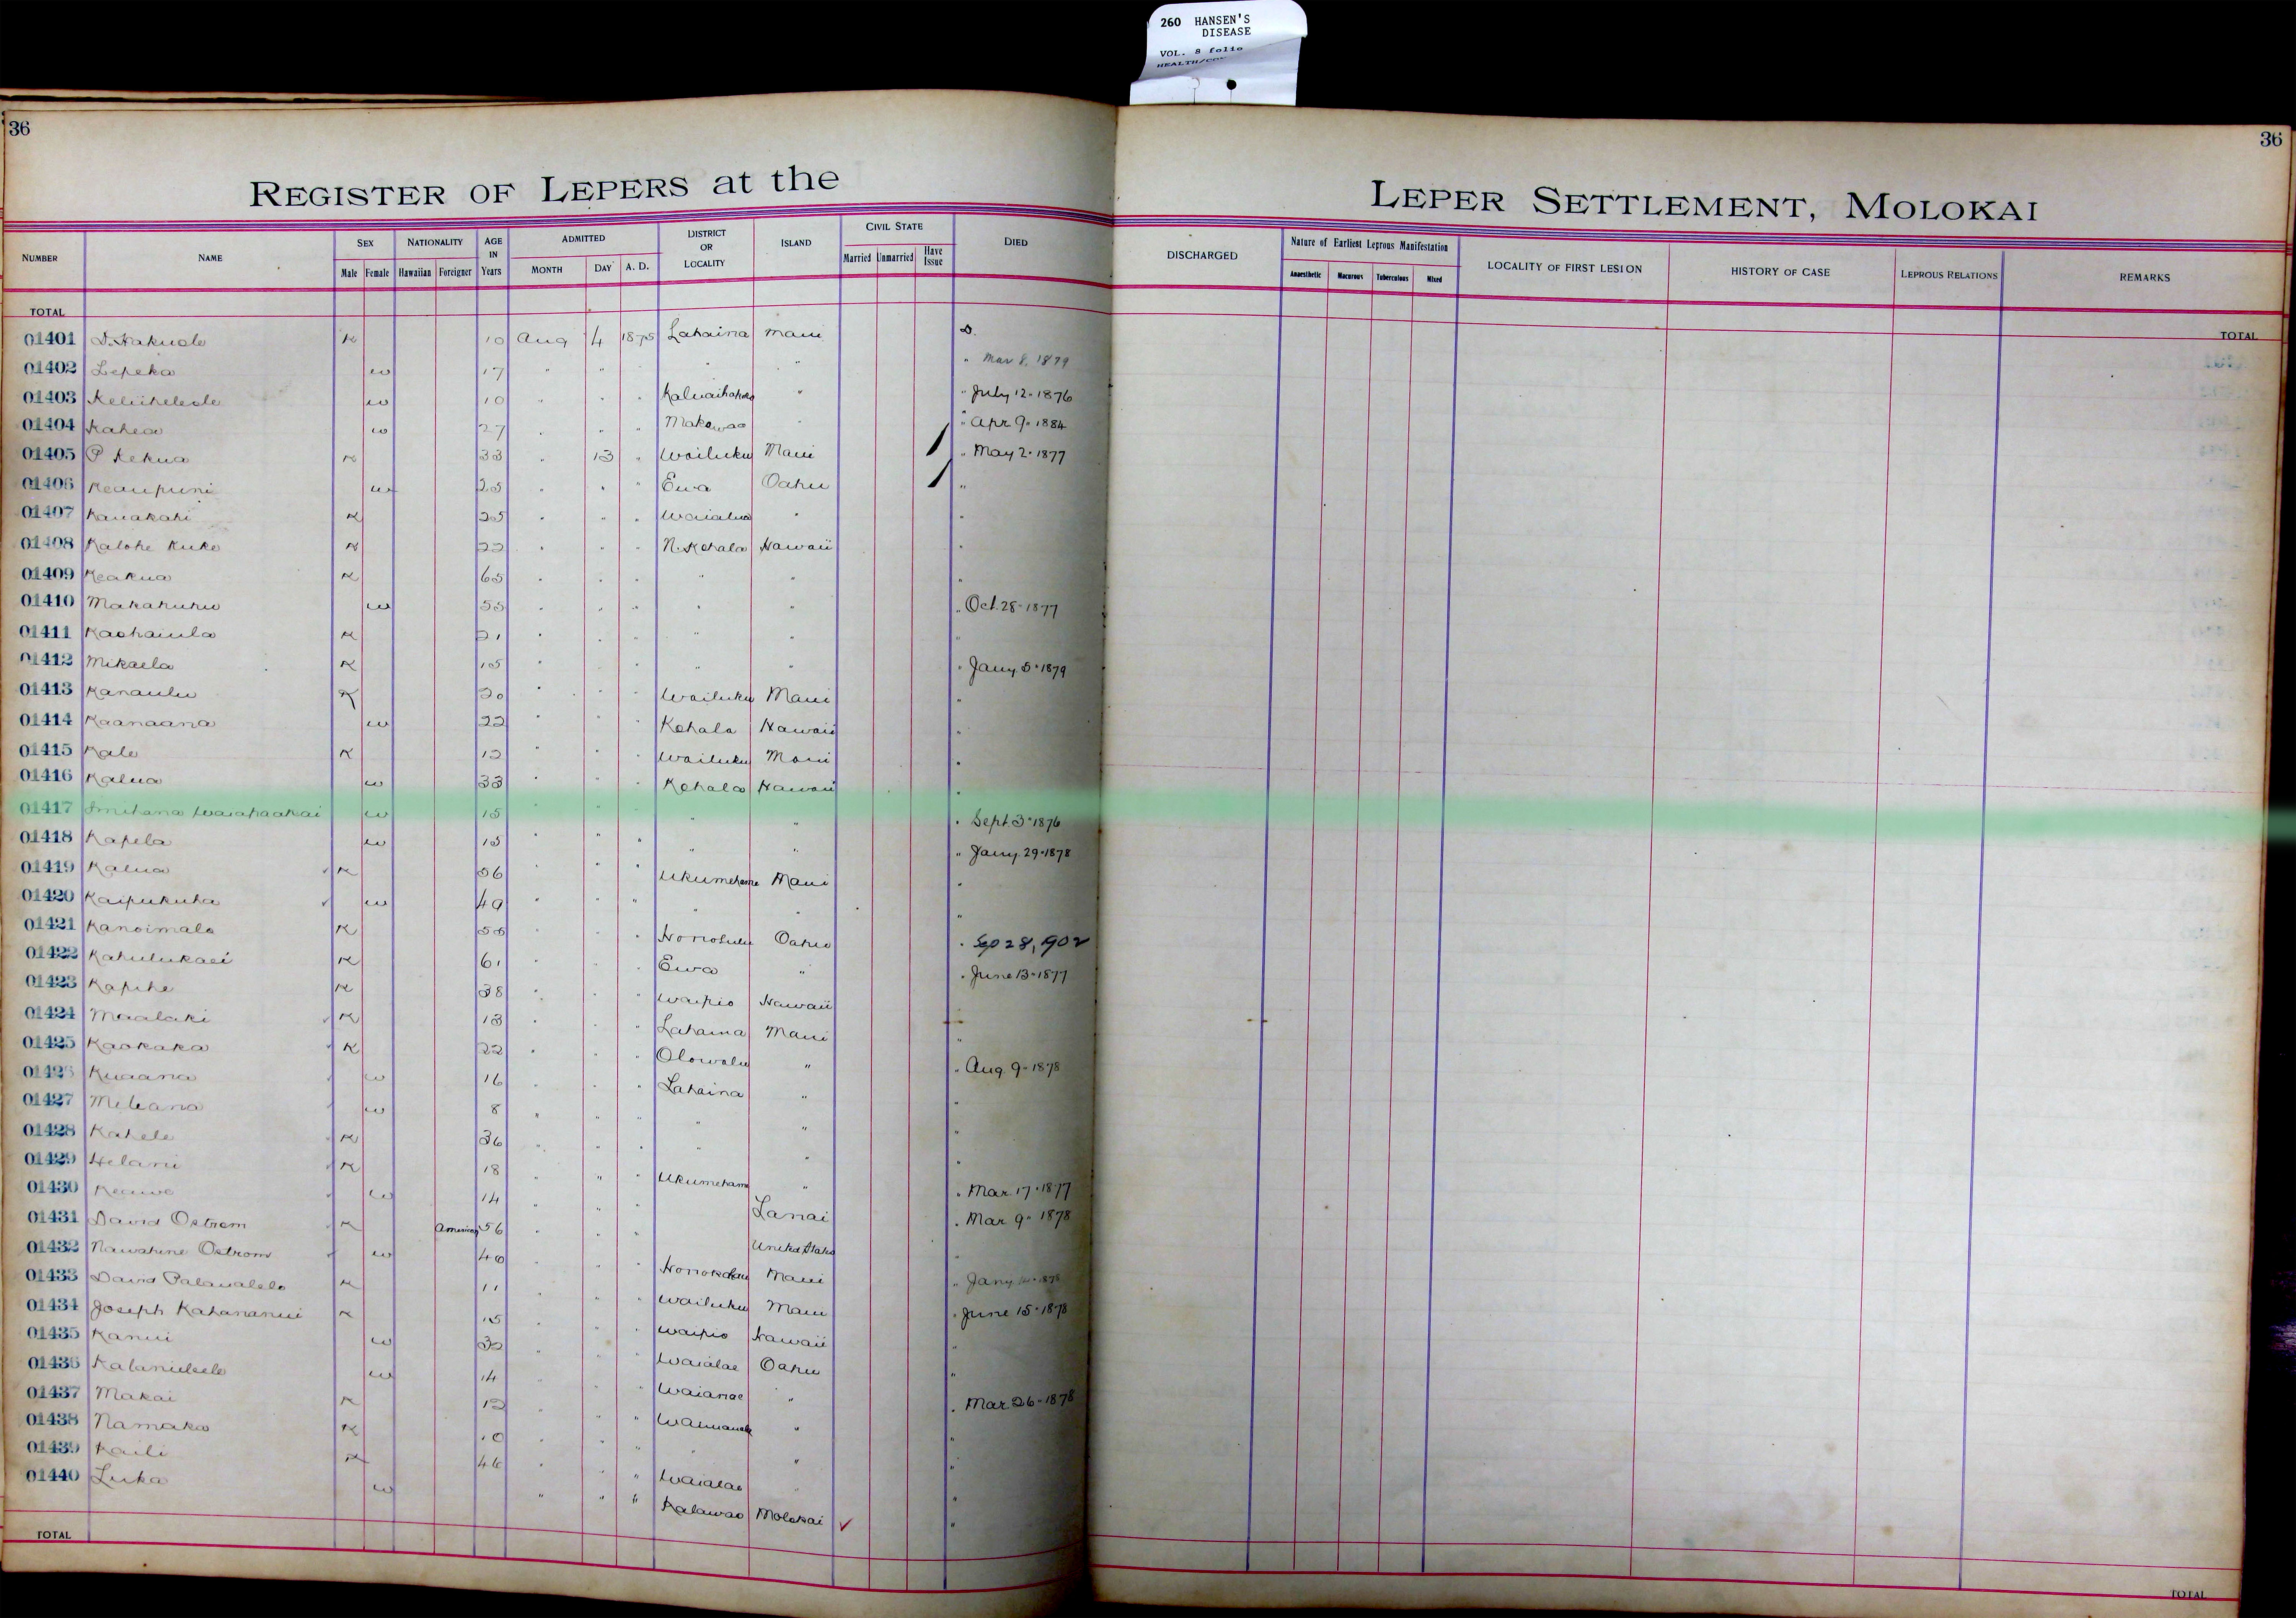 260 HANSEN'S
DISEASE
VOL. 8 folio
36
36
REGISTER OF LEPERS at the
LEPER SETTLEMENT, MOLOKAI
NUMBER NAME SEX NATIONALITY AGE IN Years ADMITTED DISTRICT OR LOCALITY ISLAND CIVIL STATE DIED DISCHARGED Nature of Earliest Leprous Manifestation LOCALITY OF FIRST LESION HISTORY OF CASE LEPROUS RELATIONS REMARKS
Male Female Hawaiian Foreigner MONTH DAY A. D. Married Unmarried Have Issue Anaesthetic Macurous Tuberculous Mixed
TOTAL TOTAL
01401 D. Hakuole K 10 Aug 4 1875 Lahaina Maui D.
01402 Lepeka w 17 " " " " " Mar 8, 1879
01403 w 10 " " " " " July 12-1876
01404 Kahea w 27 " " " Makawao " " Apr 9-1884
01405 P Kekua K 33 " 13 " Wailuku Maui " May 2-1877
01406 Keaupuni w 25 " " " Ewa Oahu "
01407 Kauakahi K 25 " " " Waialua " "
01408 Kalohe Kuke K 22 " " " N. Kohala Hawaii "
01409 Keakua K 65 " " " " " "
01410 Makahuhu w 55 " " " " " " Oct. 28-1877
01411 Kaohaiula K 21 " " " " " "
01412 Mikaela K 15 " " " " " " Jany. 5-1879
01413 Kanaulu K 20 " " " Wailuku Maui "
01414 Kaanaana w 22 " " " Kohala Hawaii "
01415 Kale K 12 " " " Wailuku Maui "
01416 Kalua w 33 " " " Kohala Hawaii "
01417 w 15 " " " " " " Sept. 3-1876
01418 Kapela w 15 " " " " " " Jany. 29-1878
01419 Kalua K 56 " " " Ukumehame Maui "
01420 Kaipukuha w 49 " " " " " "
01421 Kanoimalo K 55 " " " Honolulu Oahu " Sep 28, 1902
01422 Kahulukaei K 61 " " " Ewa " " June 13-1877
01423 Kapihe K 38 " " " Waipio Hawaii
01424 Maalaki K 13 " " " Lahaina Maui "
01425 Kaokaka K 22 " " " Olowalu " " Aug. 9-1878
01426 Kuaana w 16 " " " Lahaina " "
01427 Meleana w 8 " " " " " "
01428 Kahele K 36 " " " " " "
01429 Helani K 18 " " " Ukumehame " " Mar. 17-1877
01430 Keawe w 14 " " " Lanai " Mar. 9-1878
01431 David Ostrom K American 56 " " " United States "
01432 Nawahine Ostrom w 40 " " " Maui " Jany.
01433 David K 11 " " " Wailuku Maui " June 15-1878
01434 Joseph Kahananui K 15 " " " Waipio Hawaii "
01435 Kanui w 32 " " " Waialae Oahu "
01436 w 14 " " " Waianae " " Mar. 26-1878
01437 Makai K 12 " " " " "
01438 Namaka K 10 " " " " " "
01439 Kaili K 46 " " " Waialae " "
01440 Luka w " " " Kalawao Molokai "
TOTAL TOTAL